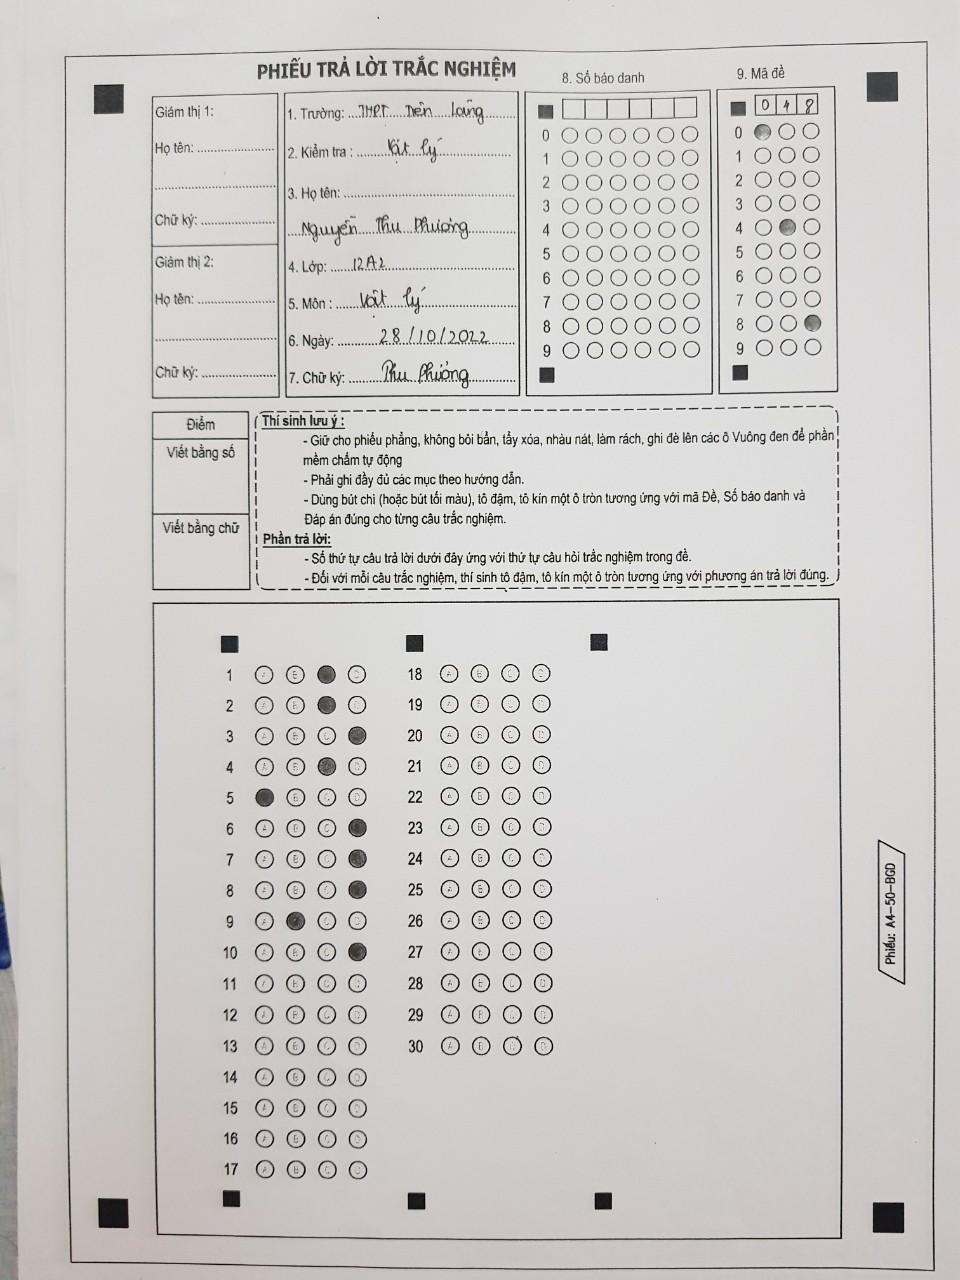 PHIẾU TRẢ LỜI TRẮC NGHIỆM
8. Số báo danh
9. Mã đề
Giám thị 1:
Họ tên: ......................
Chữ ký: ......................
Giám thị 2:
Họ tên: ......................
Chữ ký: ......................
1. Trường: THPT Tiên Lãng
2. Kiểm tra : Vật lý
3. Họ tên:
Nguyễn Thu Phương
4. Lớp: 12A2
5. Môn : Vật lý
6. Ngày: 28/10/2022
7. Chữ ký: Thu Phương
0
1
2
3
4
5
6
7
8
9
0 4 8
0
1
2
3
4
5
6
7
8
9
Điểm
Viết bằng số
Viết bằng chữ
Thí sinh lưu ý :
- Giữ cho phiếu phẳng, không bôi bẩn, tẩy xóa, nhàu nát, làm rách, ghi đè lên các ô Vuông đen để phần
mềm chấm tự động
- Phải ghi đầy đủ các mục theo hướng dẫn.
- Dùng bút chì (hoặc bút tối màu), tô đậm, tô kín một ô tròn tương ứng với mã Đề, Số báo danh và
Đáp án đúng cho từng câu trắc nghiệm.
Phần trả lời:
- Số thứ tự câu trả lời dưới đây ứng với thứ tự câu hỏi trắc nghiệm trong đề.
- Đối với mỗi câu trắc nghiệm, thí sinh tô đậm, tô kín một ô tròn tương ứng với phương án trả lời đúng.
1 A B D
2 A B D
3 A B C
4 A B D
5 B C D
6 A B C
7 A B C
8 A B C
9 A C D
10 A B C
11 A B C D
12 A B C D
13 A B C D
14 A B C D
15 A B C D
16 A B C D
17 A B C D
18 A B C D
19 A B C D
20 A B C D
21 A B C D
22 A B C D
23 A B C D
24 A B C D
25 A B C D
26 A B C D
27 A B C D
28 A B C D
29 A B C D
30 A B C D
Phiếu: A4-50-BGD